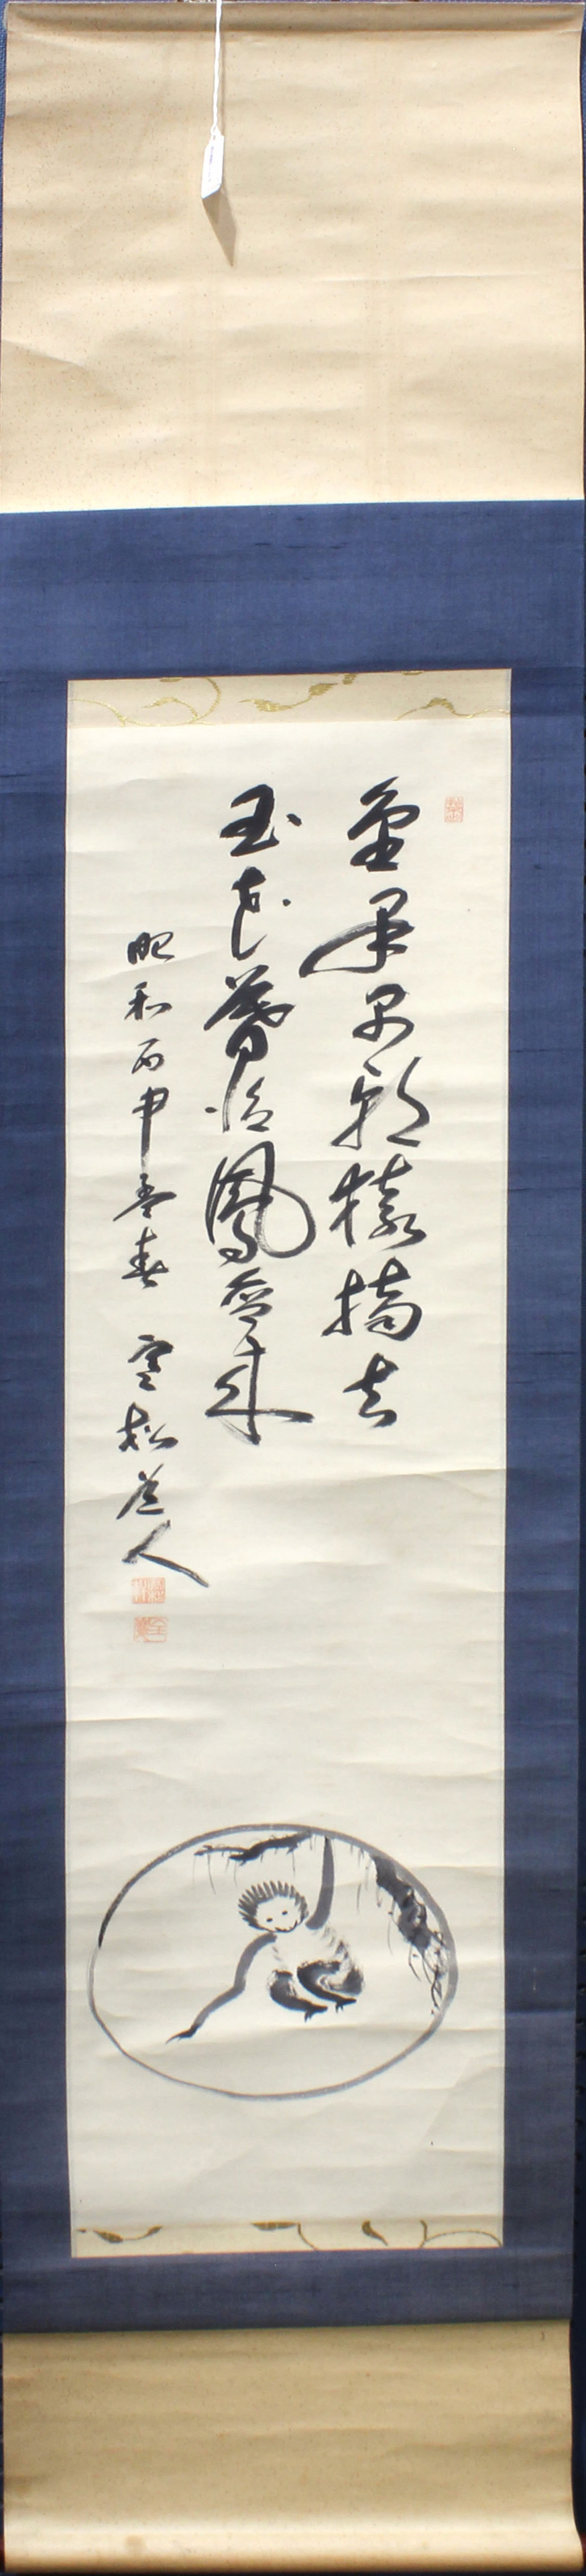 金果早朝猿摘去
玉花暮後鳳啣来
昭和丙申季春 寒松道人